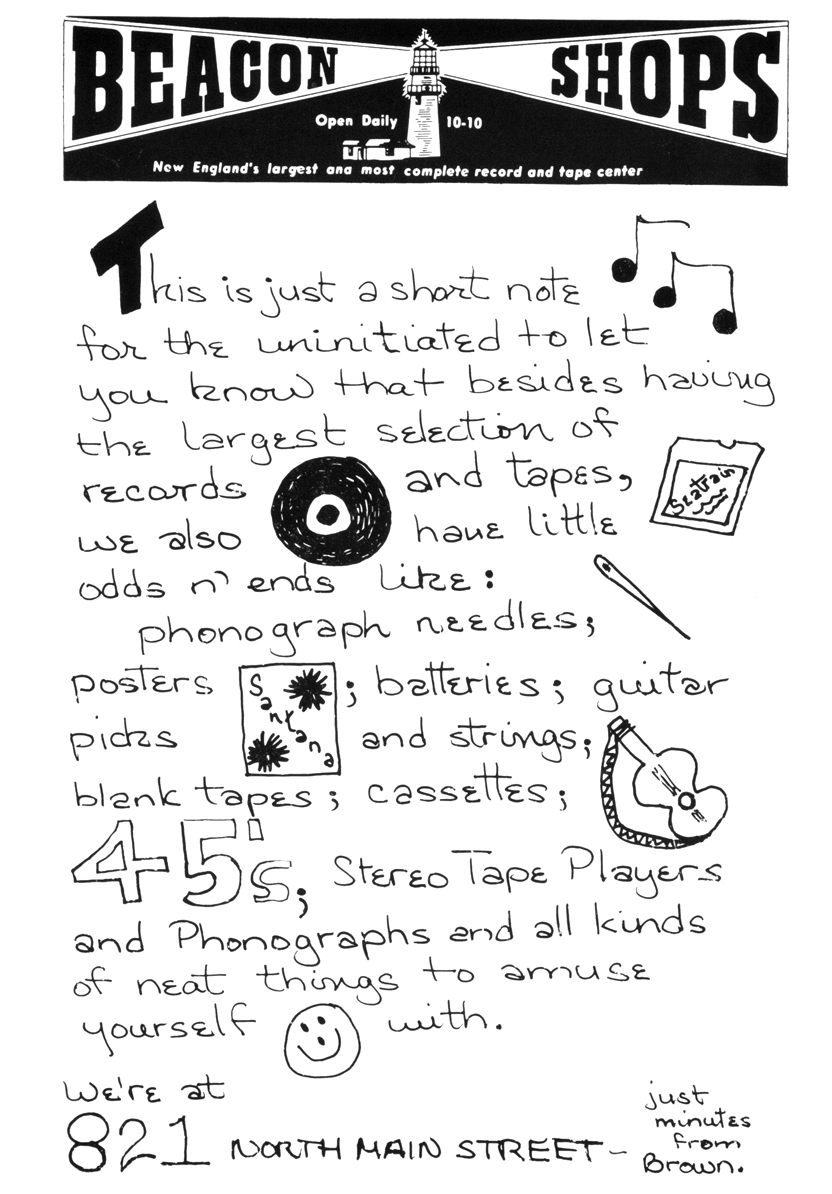 BEACON SHOPS
Open Daily 10-10
New England's largest and most complete record and tape center
This is just a short note
for the uninitiated to let
you know that besides having
the largest selection of
records and tapes,
Seatrain
we also have little
odds n' ends like:
phonograph needles;
posters Santana ; batteries; guitar
picks and strings;
blank tapes; cassettes;
45's; Stereo Tape Players
and Phonographs and all kinds
of neat things to amuse
yourself with.
We're at
821 NORTH MAIN STREET – just
minutes
from
Brown.